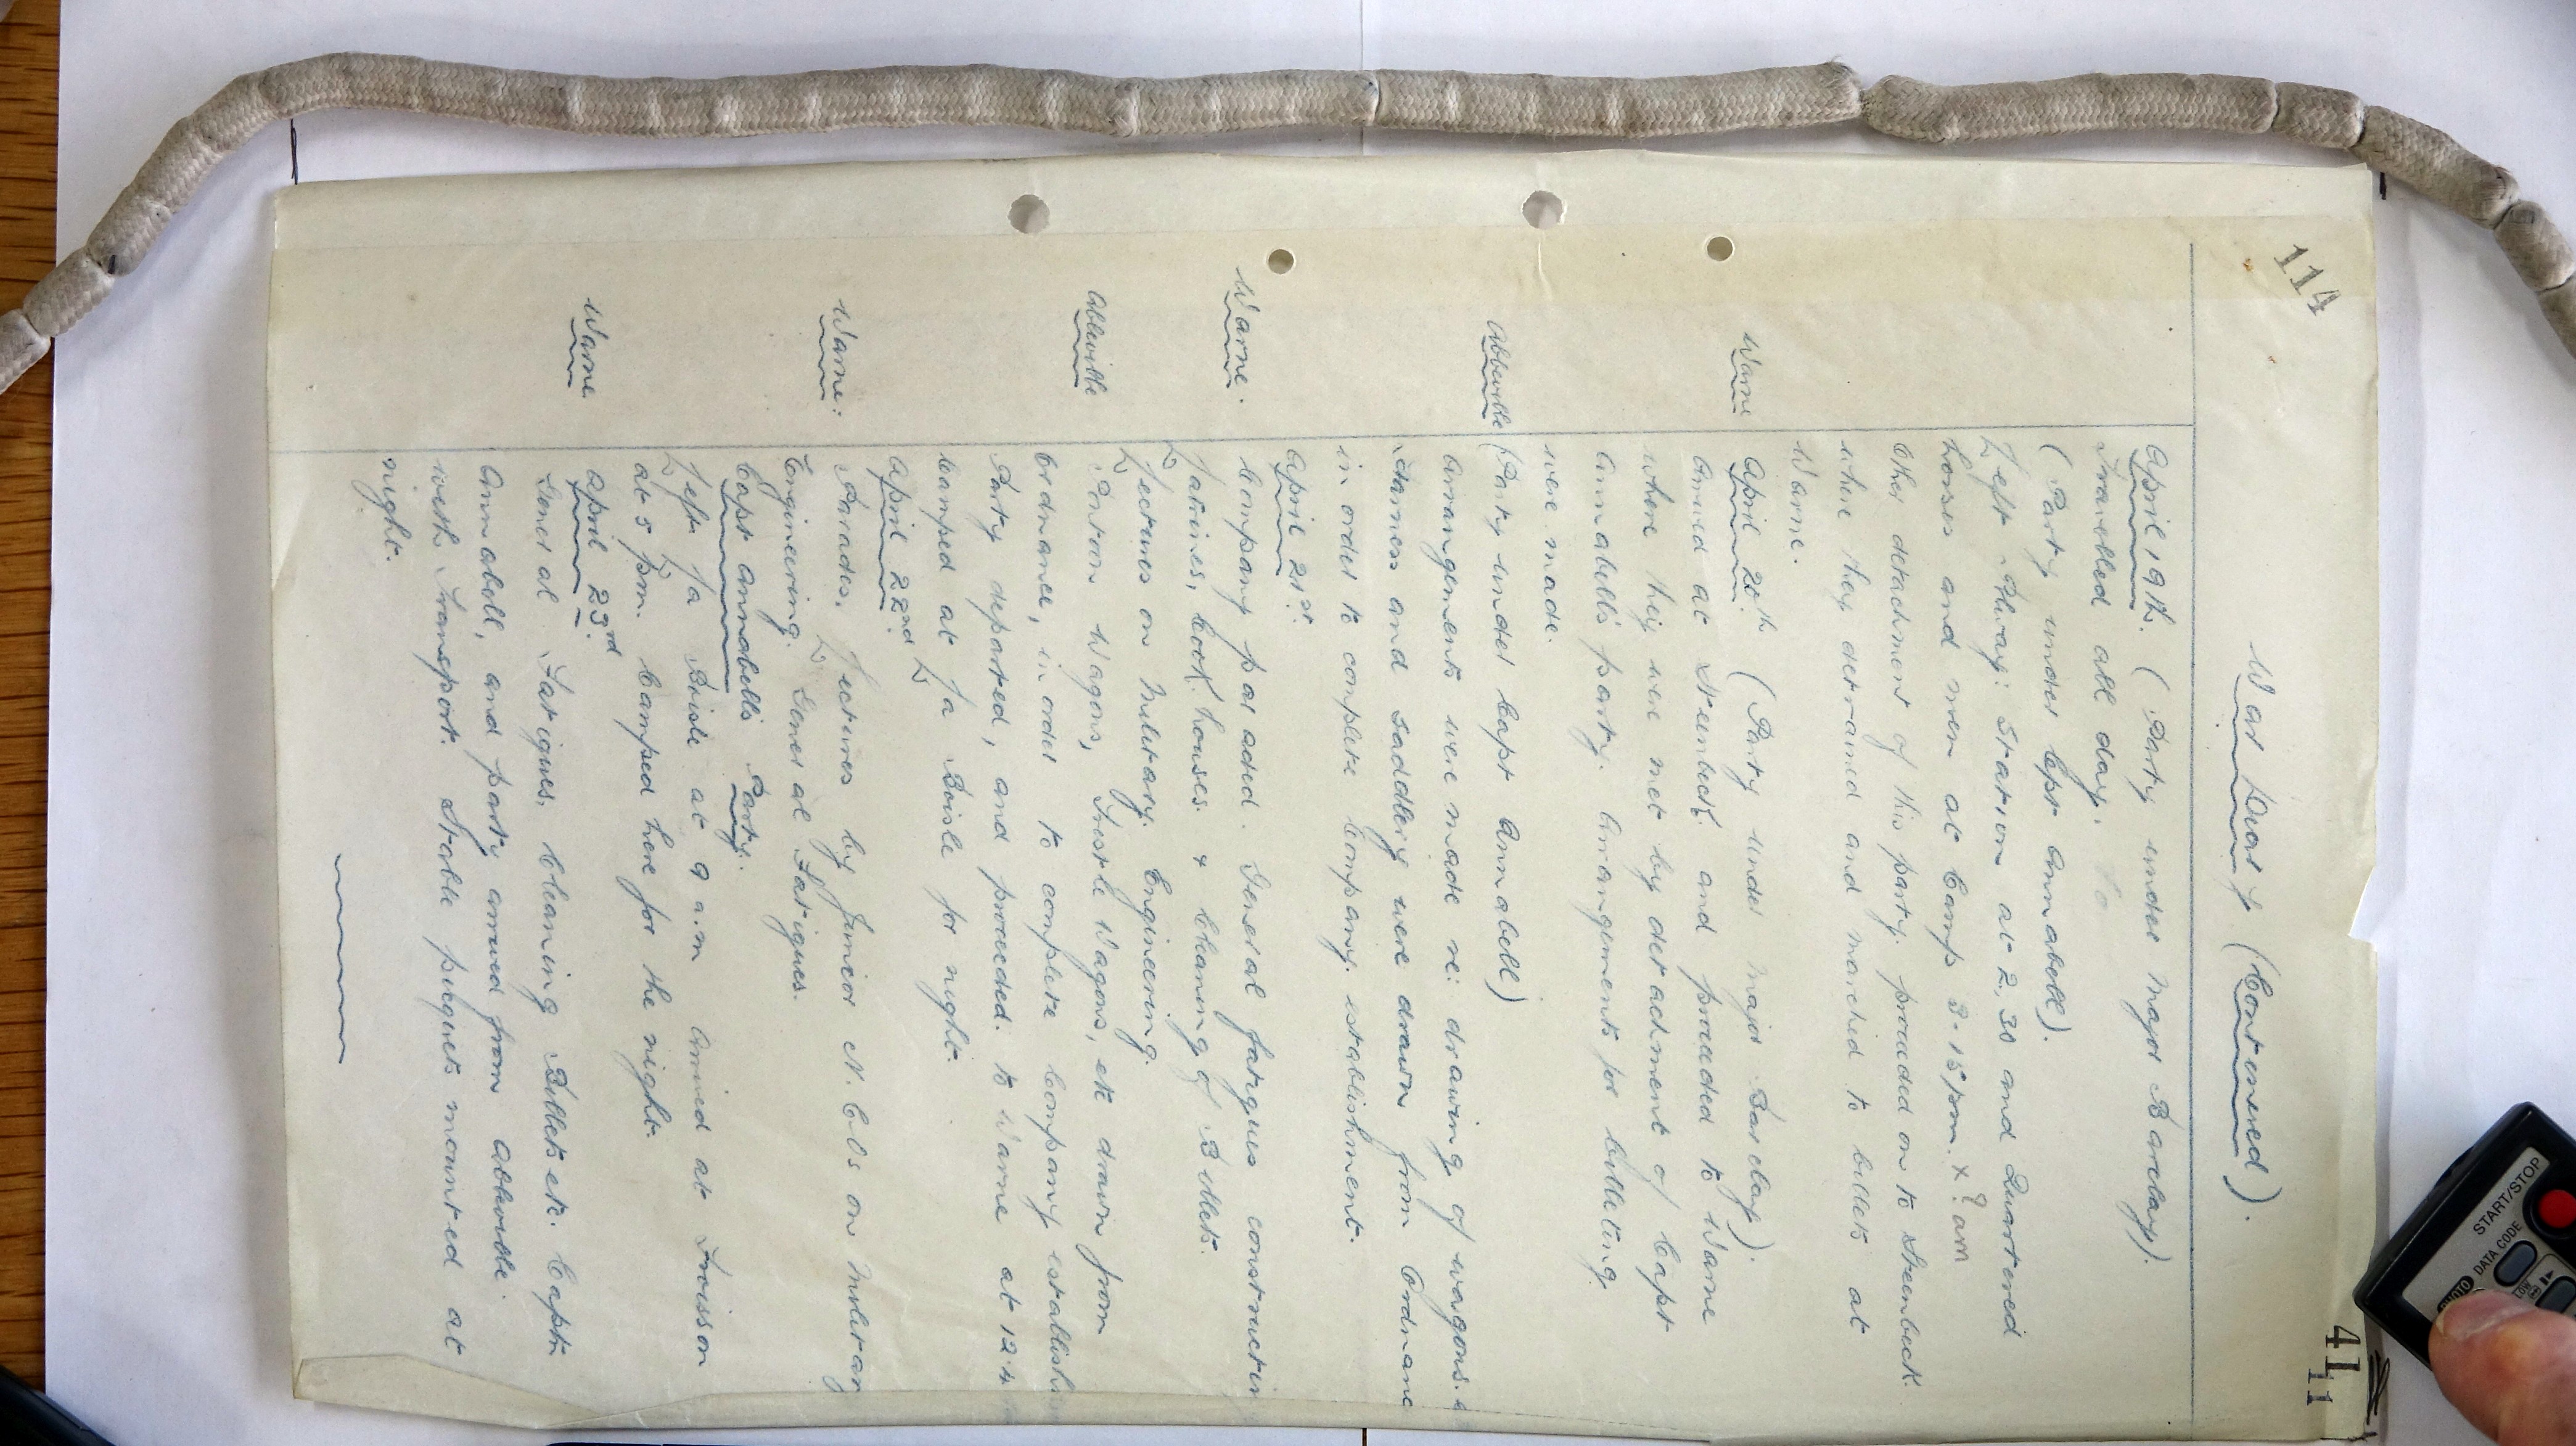 114
4111
War Diary (Continued).
April 19th. (Party under Major Barclay).
Travelled all day.
(Party under Capt Annabell).
Left Rlway: Station at 2,30 and Quartered
horses and men at Camp 3.15pm. x ? am
Other detachment of this party. proceeded on to Steenbeck.
where they detrained and marched to billets at
Warne.
Warne
April 20th (Party under Major Barclay).
arrived at Steenbeck. and proceeded to Warne
where they were met by detachment of Capt
Annabell's party. Arrangements for billeting
were made.
Abbeville
(Party under Capt Annabell)
Arrangements were made re: drawing of wagons.
Harness and Saddlery were drawn from Ordnance
in order to complete Company. establishment.
Warne.
April 21st.
Company paraded. General fatigues constructing
Latrines, Cook houses. & Cleaning of Billets.
Lectures on Military. Engineering.
Abbeville
Pontoon Wagons, Trestle Wagons, etc drawn from
Ordnance, in order to complete Company establish
Party departed, and proceeded. to Warne at 12.
Camped at La Boisle for night.
Warne:
April 22nd.
Parades. Lectures by Junior N.C.Os on Military
Engineering. General Fatigues.
Capt Annabells Party.
Left La Boisle at 9 a.m Arrived at Froisson
at 5 pm. Camped here for the night.
Warne
April 23rd.
General Fatigues. Cleaning Billets etc. Captn
Annabell, and party arrived from Abbeville.
with Transport. Stable piquets mounted at
night.
START/STOP
DATA CODE
PHOTO
LOW